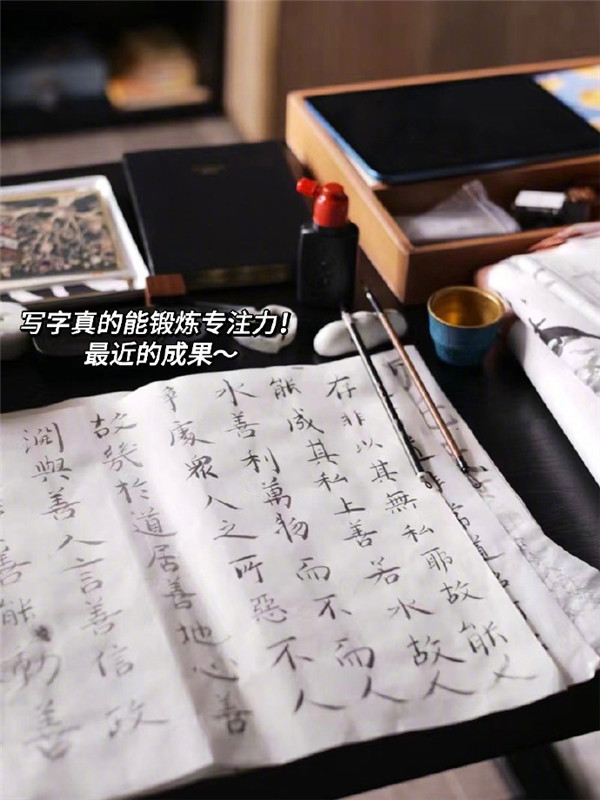 写字真的能锻炼专注力!
最近的成果～
存非以其無私耶故能
能成其私上善若水故人
水善利萬物而不而人
爭處眾人之所惡不人
故幾於道居善地心善
淵與善人言善信政
善能動善
非常道